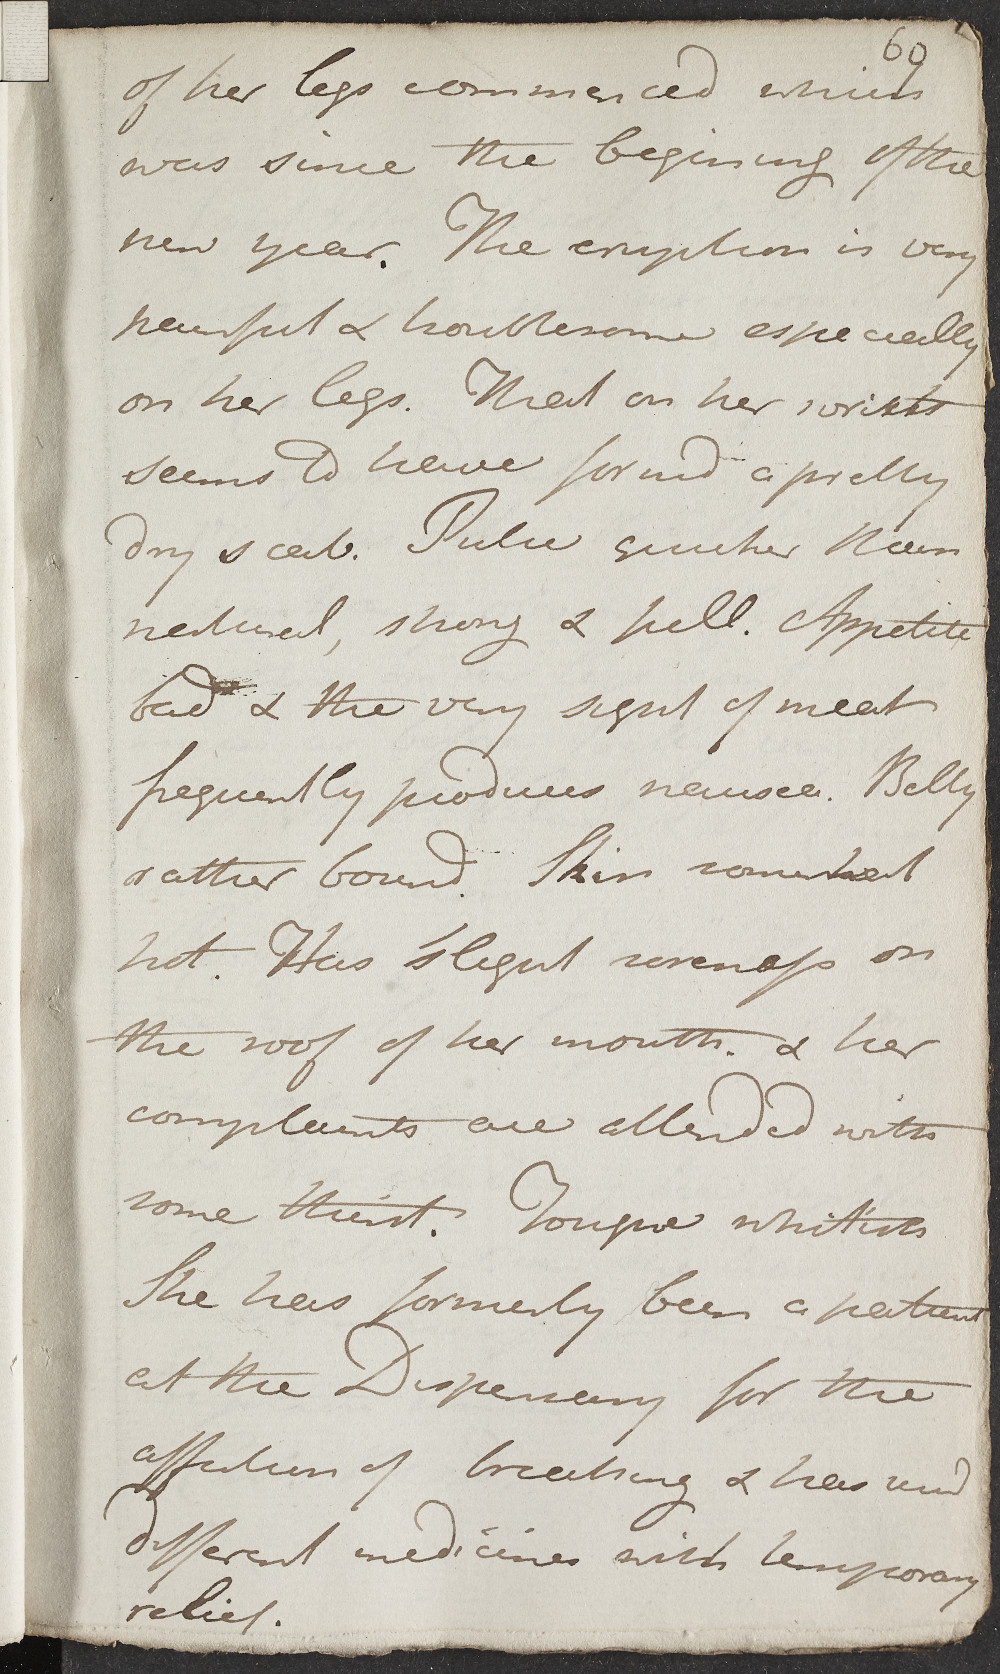 69
of her legs commenced which
was since the begining of the
new year. The eruption is very
painful & troublesome especially
on her legs. That on her wrists
seems to have formd a pretty
dry scab. Pulse quicker than
natural, strong & full. Appetite
bad & the very sight of meat
frequently produces nausea. Belly
rather bound. Skin somewhat
hot. Has slight soreness on
the roof of her mouth. & her
complaints are attended with
some thirst. Tongue whitish
She has formerly been a patient
at the Dispensary for the
affection of breathing & has usd
different medicines with temporary
relief.